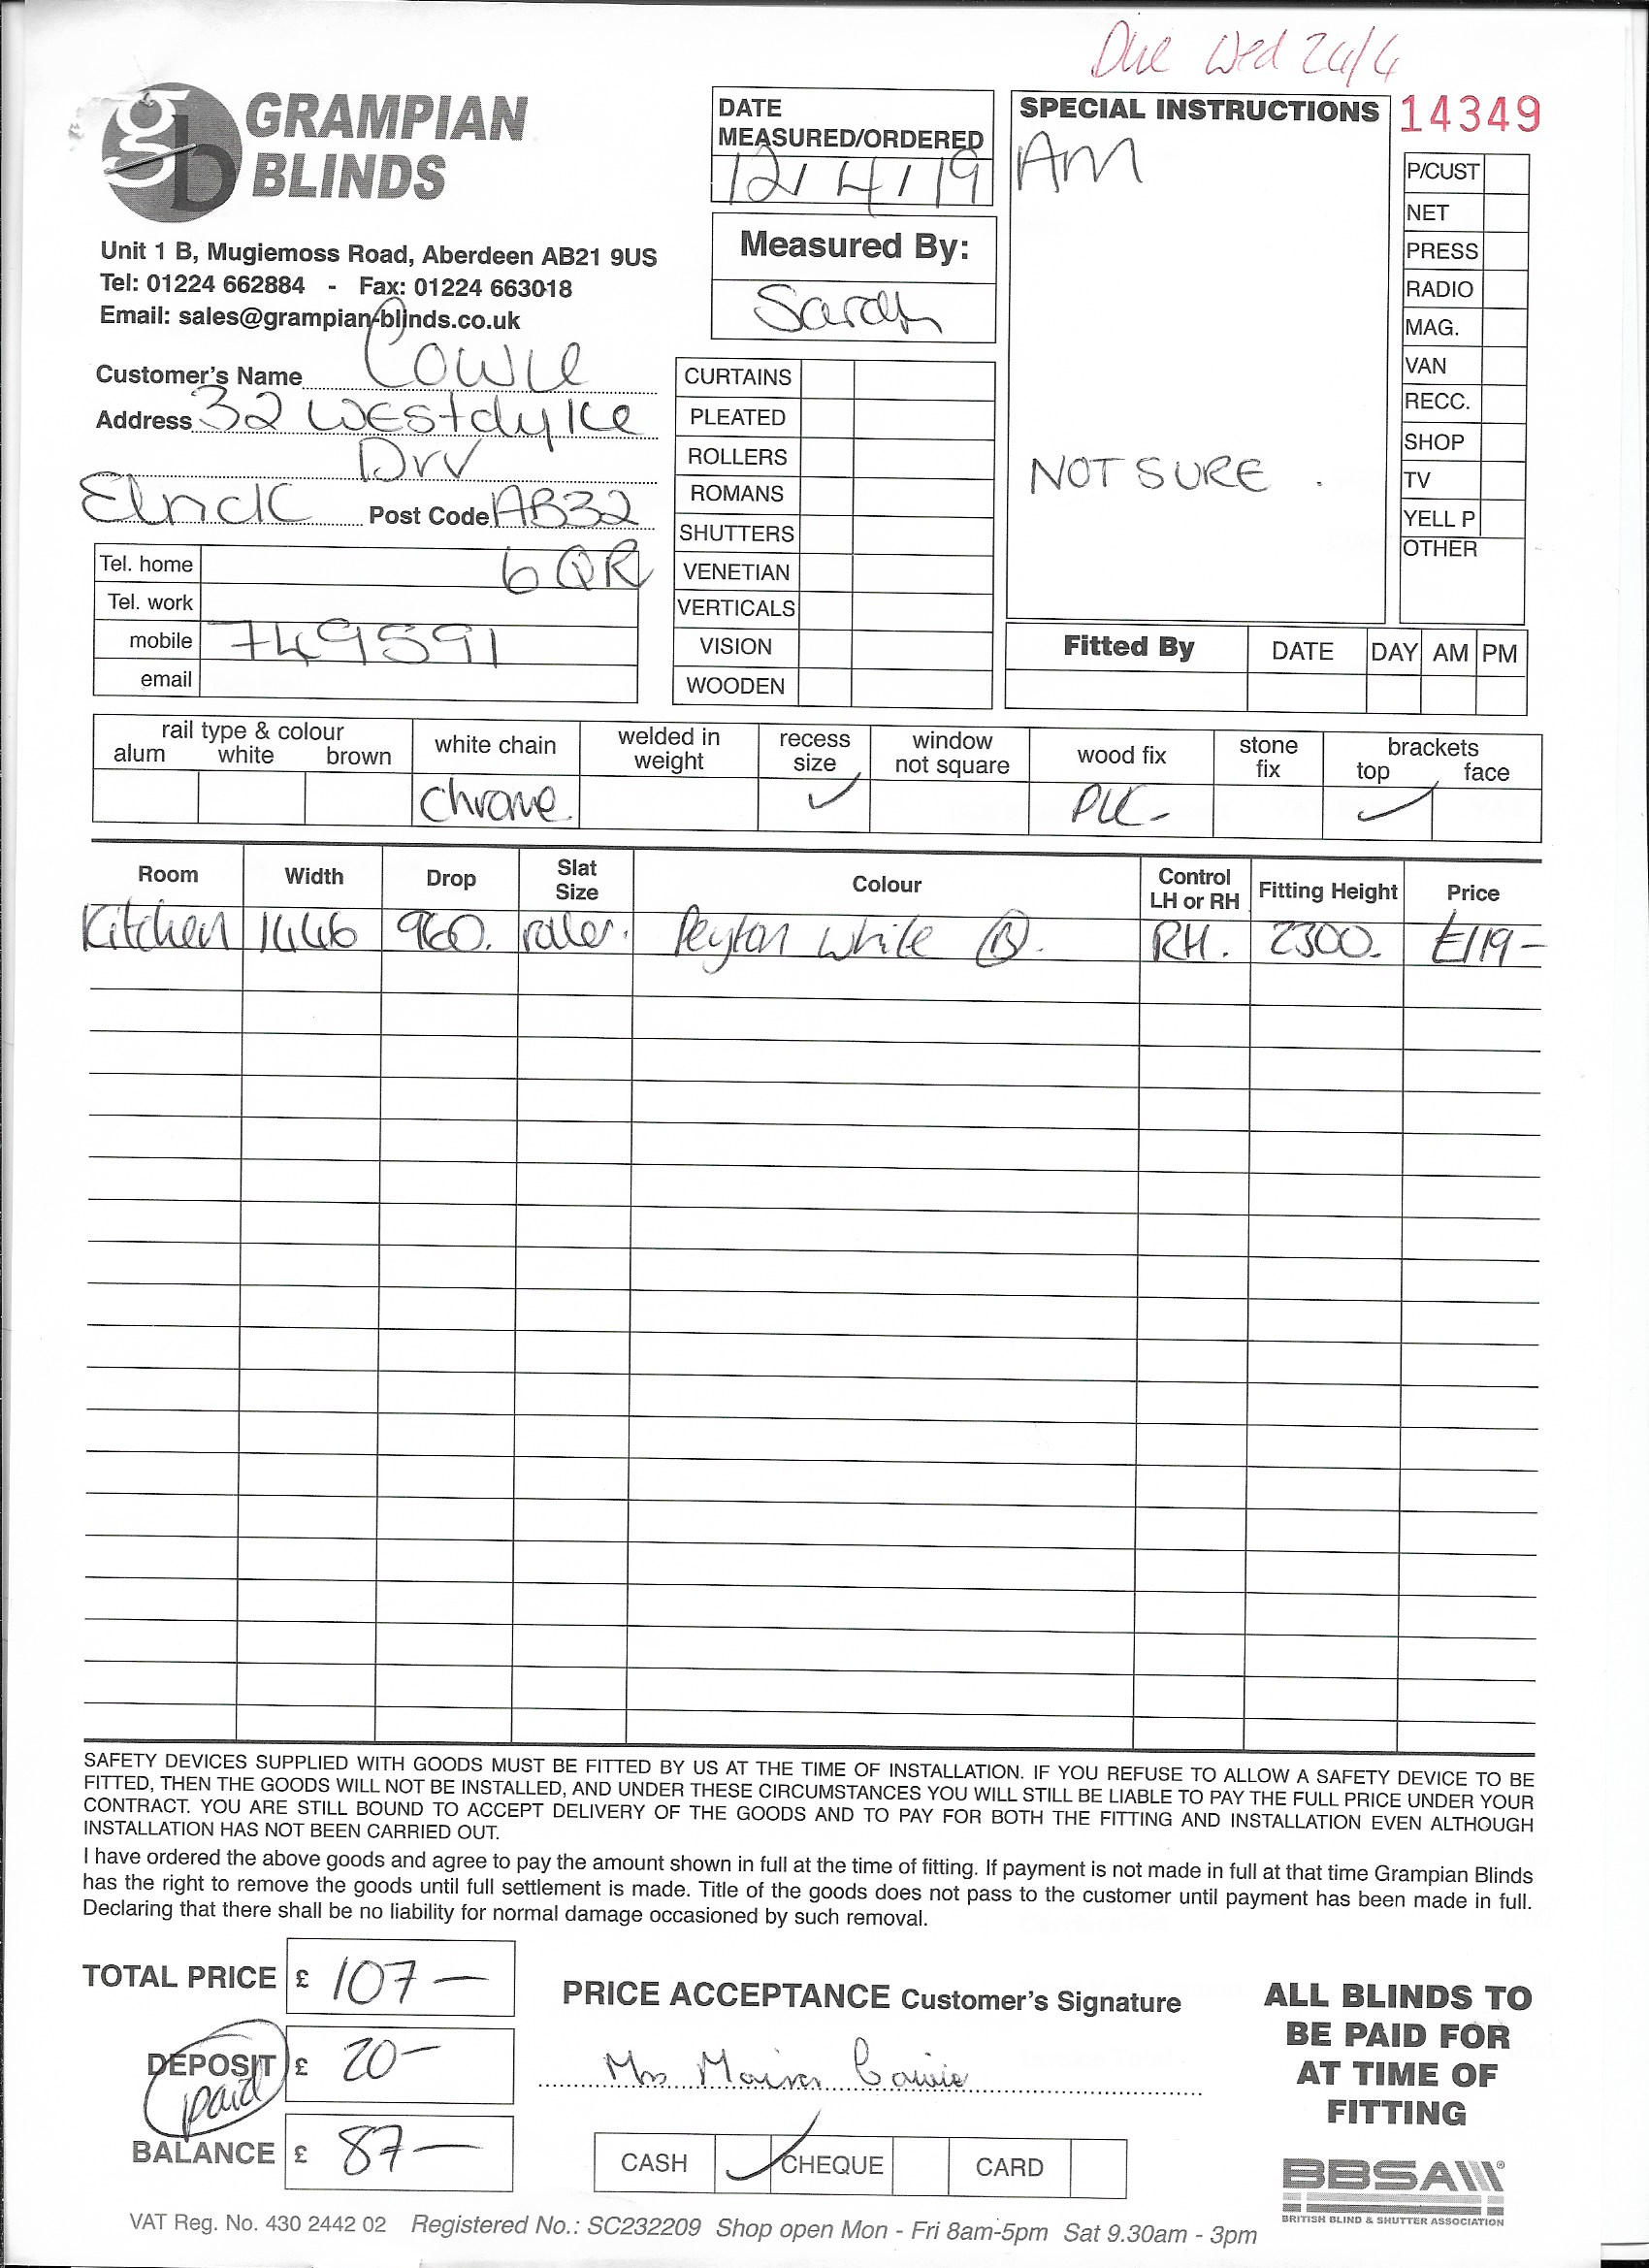 Due Wed 24/4
GRAMPIAN
BLINDS
Unit 1 B, Mugiemoss Road, Aberdeen AB21 9US
Tel: 01224 662884 - Fax: 01224 663018
Email: sales@grampian-blinds.co.uk
DATE
MEASURED/ORDERED
12/4/19
Measured By:
Sarah
SPECIAL INSTRUCTIONS
AM
NOT SURE .
14349
P/CUST
NET
PRESS
RADIO
MAG.
VAN
RECC.
SHOP
TV
YELL P
OTHER
Customer's Name Cowie
Address 32 Westdyke
Drv
Elrick Post Code AB32
6QR
Tel. home
Tel. work
mobile 749591
email
CURTAINS
PLEATED
ROLLERS
ROMANS
SHUTTERS
VENETIAN
VERTICALS
VISION
WOODEN
Fitted By DATE DAY AM PM
rail type & colour
alum white brown
white chain
chrome
welded in
weight
recess
size
✓
window
not square
wood fix
PVC-
stone
fix
brackets
top face
✓
Room Width Drop Slat Size Colour Control LH or RH Fitting Height Price
Kitchen 1446 960. roller. Peyton White B. RH. 2300. £119-
SAFETY DEVICES SUPPLIED WITH GOODS MUST BE FITTED BY US AT THE TIME OF INSTALLATION. IF YOU REFUSE TO ALLOW A SAFETY DEVICE TO BE
FITTED, THEN THE GOODS WILL NOT BE INSTALLED, AND UNDER THESE CIRCUMSTANCES YOU WILL STILL BE LIABLE TO PAY THE FULL PRICE UNDER YOUR
CONTRACT. YOU ARE STILL BOUND TO ACCEPT DELIVERY OF THE GOODS AND TO PAY FOR BOTH THE FITTING AND INSTALLATION EVEN ALTHOUGH
INSTALLATION HAS NOT BEEN CARRIED OUT.
I have ordered the above goods and agree to pay the amount shown in full at the time of fitting. If payment is not made in full at that time Grampian Blinds
has the right to remove the goods until full settlement is made. Title of the goods does not pass to the customer until payment has been made in full.
Declaring that there shall be no liability for normal damage occasioned by such removal.
TOTAL PRICE £ 107-
DEPOSIT £ 20-
paid
BALANCE £ 87-
PRICE ACCEPTANCE Customer's Signature
Mrs Cowie
CASH ✓ CHEQUE CARD
ALL BLINDS TO
BE PAID FOR
AT TIME OF
FITTING
BBSA
BRITISH BLIND & SHUTTER ASSOCIATION
VAT Reg. No. 430 2442 02 Registered No.: SC232209 Shop open Mon - Fri 8am-5pm Sat 9.30am - 3pm